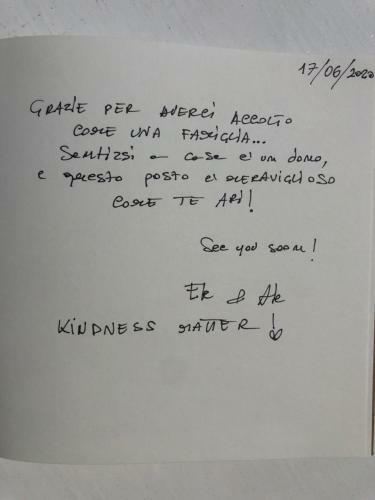 17/06/2020
GRAZIE PER AVERCI ACCOLTO
COME UNA FAMIGLIA...
Sentirsi a casa è un dono,
e questo posto è MERAVIGLIOSO
COME TE ARI!
See you soon!
Ek & Ak
KINDNESS MATTER!